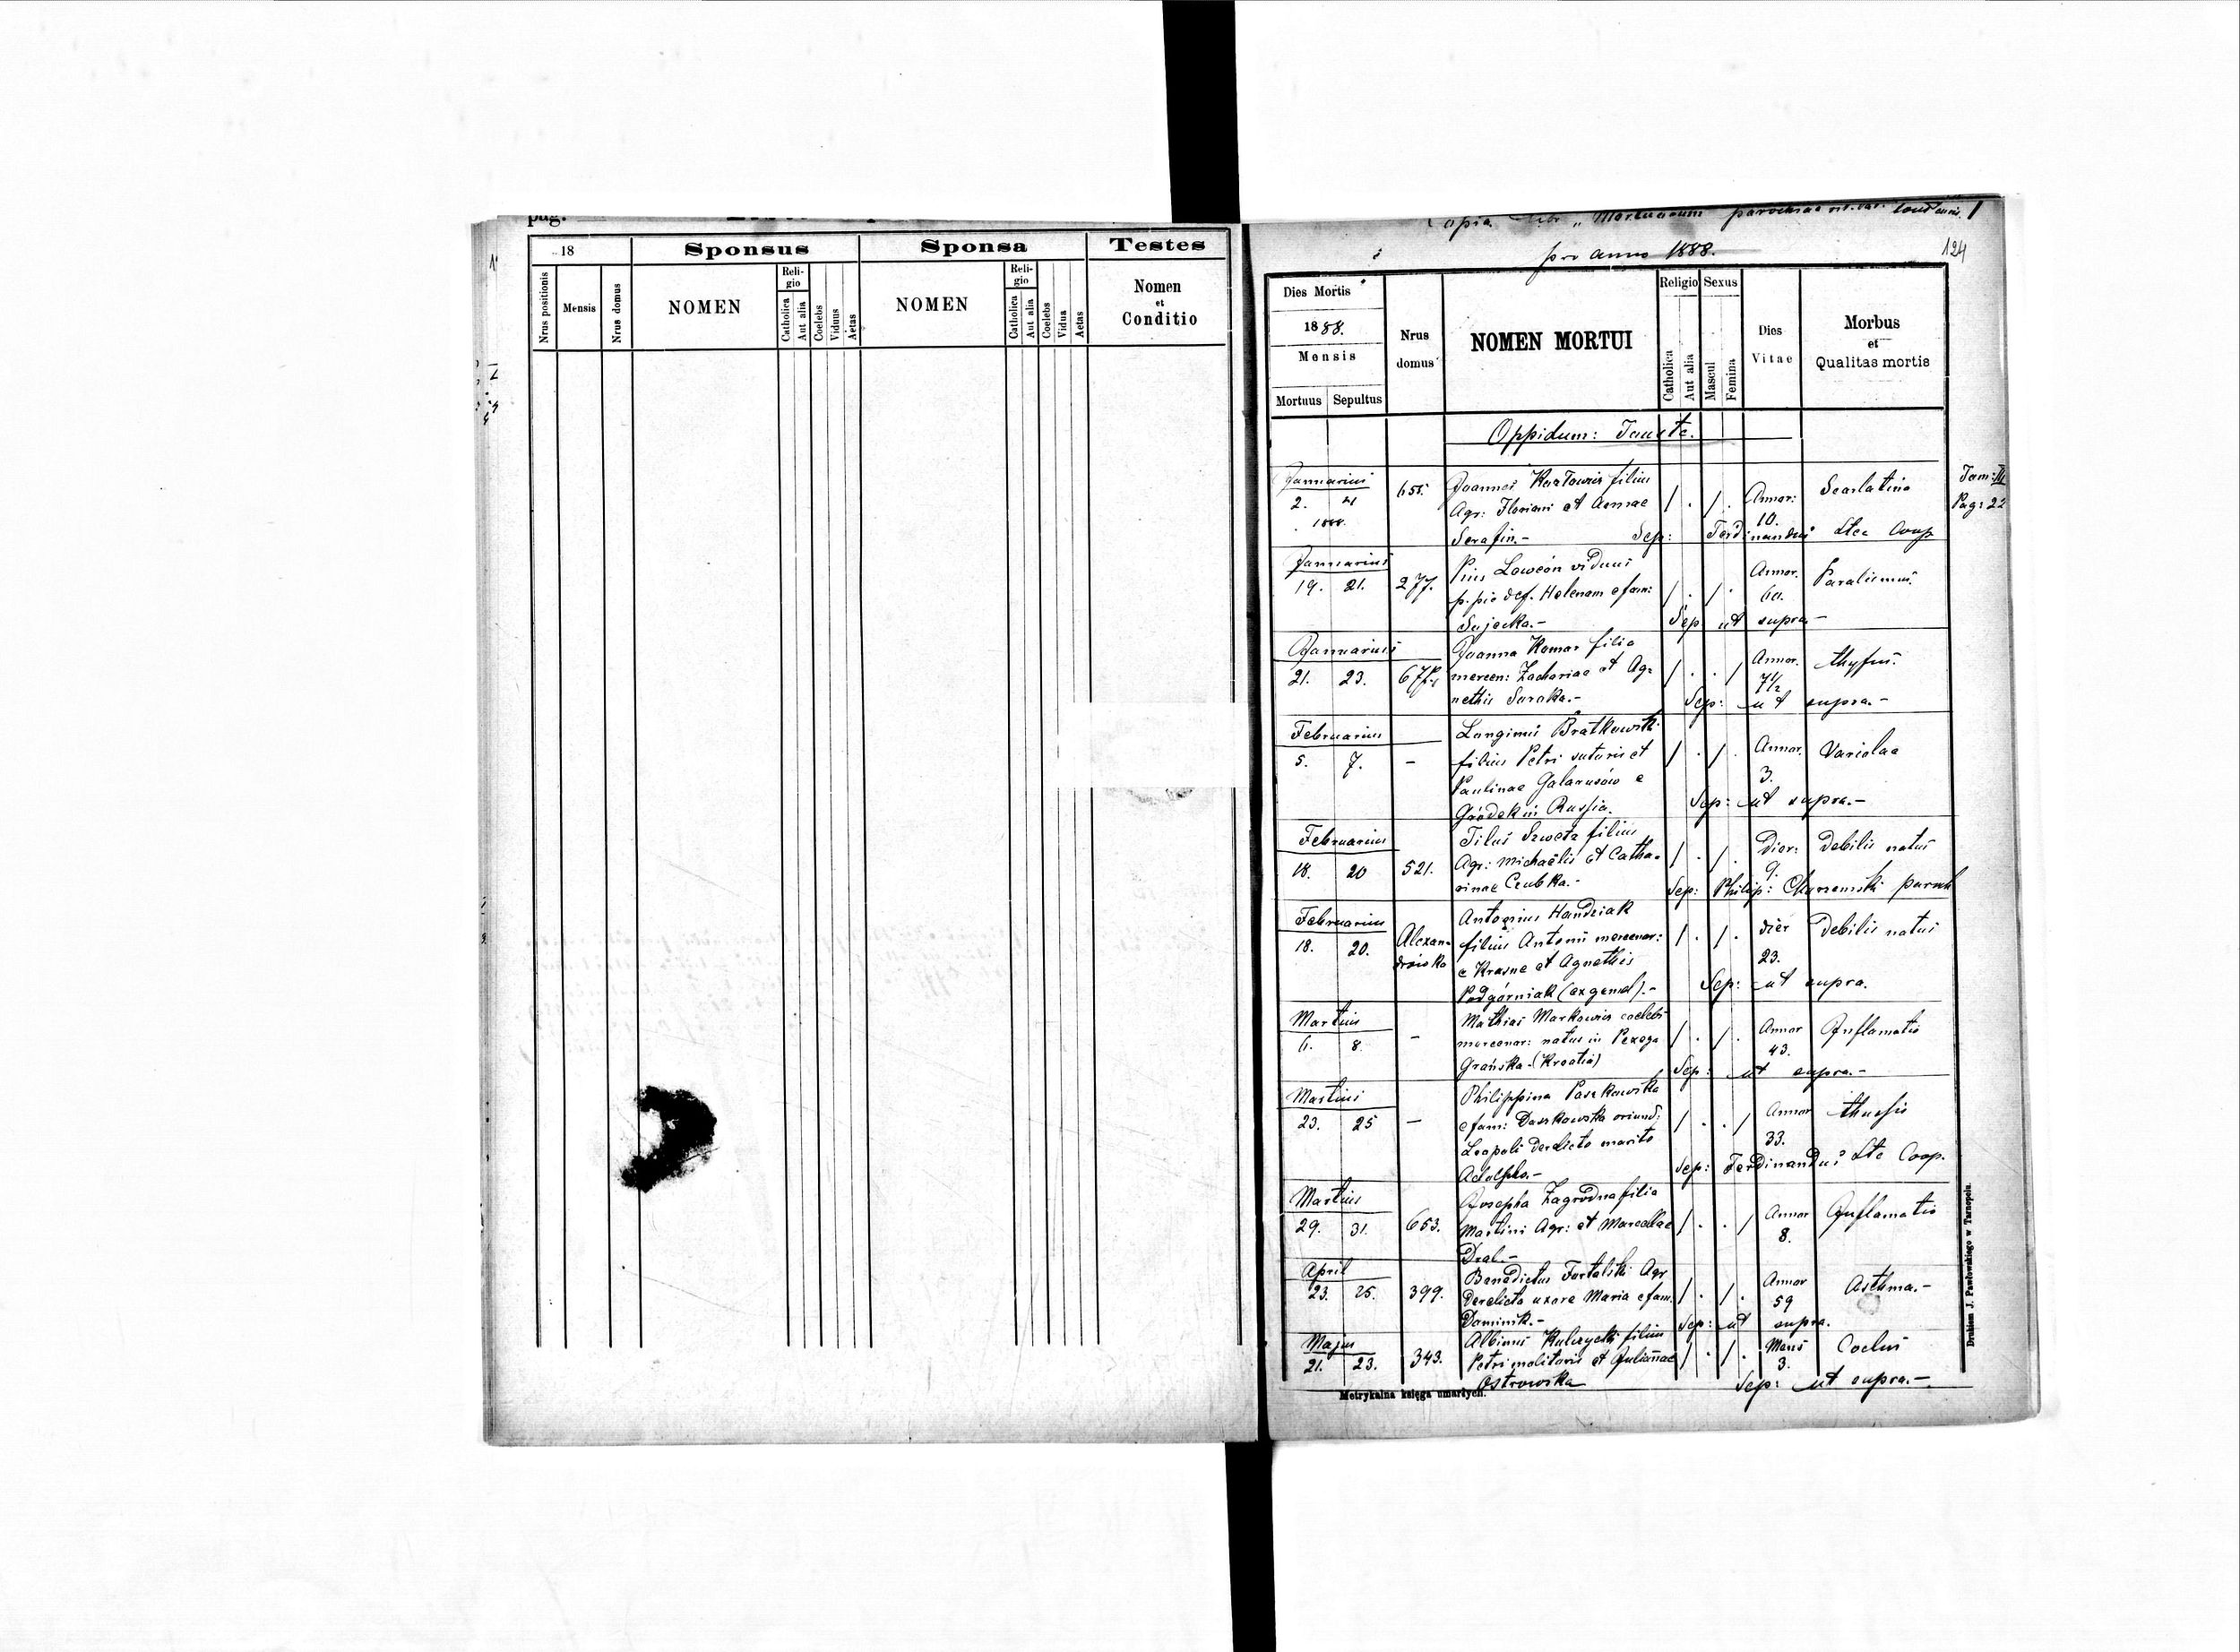 pag.
18
Sponsus
Sponsa
Testes
Nrus positionis
Mensis
Nrus domus
NOMEN
Religio
Catholica
Aut alia
Coelebs
Viduus
Aetas
NOMEN
Religio
Catholica
Aut alia
Coelebs
Vidua
Aetas
Nomen
et
Conditio
Copia Libr „Mortuorum parochiae rit. lat.
pro anno 1888.
124
Dies Mortis
1888.
Mensis
Mortuus
Sepultus
Nrus
domus
NOMEN MORTUI
Religio
Catholica
Aut alia
Sexus
Mascul
Femina
Dies
Vitae
Morbus
et
Qualitas mortis
Oppidum: Touste.
Tom: III
Pag: 22
Januarius
2. 4
1888.
655.
Joannes filius
Agr: Floriani et Annae
Serafin.-
/ . / .
Annor:
10.
Scarlatina
Sep: Ferdinandus Coop
Januarius
19. 21.
277.
Pius viduus
p. pie def. Helenam e fam:
Sujecka.-
/ . / .
Annor.
60.
Paralismus.
Sep ut supra.-
Januarius
21. 23.
677.
Joanna Komar filia
mercen: Zachariae et Ag=
nethis Suraka.-
/ . . /
Annor.
7 1/2
thyfus.
Sep: ut supra.-
Februarius
5. 7.
-
Longinus Bratkowski
filius Petri sutoris et
Paulinae e
Gródek in Russia.
/ . / .
Annor.
3.
Variolae
Sep: ut supra.-
Februarius
18. 20
521.
Titus Szweta filius
Agr: Michaëlis et Catha=
rinae Czubka.-
/ . / .
Dier:
9.
Debilis natus
Sep: Philip: paroch
Februarius
18. 20.
Alexan=
drówka
Antonius Handziak
filius Antonii mercenar:
e Krasne et Agnethis
Podgórniak (ex gemel).-
/ . / .
dier
23.
Debilis natus
Sep: ut supra.
Martius
6. 8.
-
Mathias Markowicz coelebs
mercenar: natus in Pexega
Grańska.(Kroatia)
/ . / .
Annor
43.
Inflamatio
Sep: ut supra.-
Martius
23. 25
-
Philippina Paszkowska
e fam: Daszkowska oriund:
Leopoli derelicto marito
Adolpho.-
/ . . /
Annor
33.
thussis
Sep: Ferdinandus Coop.
Martius
29. 31.
653.
Josepha Zagrodna filia
Martini Agr: et Marcellae
Dral.-
/ . . /
Annor
8.
Inflamatio
April
23. 25.
399.
Benedictus Furtalski Agr
derelicta uxore Maria e fam.
Dominik.-
/ . / .
Annor
59
Asthma.-
Sep: ut supra.
Majus
21. 23.
343.
Albinus Kulczycki filius
Petri molitoris et Julianae
Ostrowska
/ . / .
Mens
3.
Coclus
Sep: ut supra.-
Metrykalna księga umarłych.
Drukiem J. Pawłowskiego w Tarnopolu.